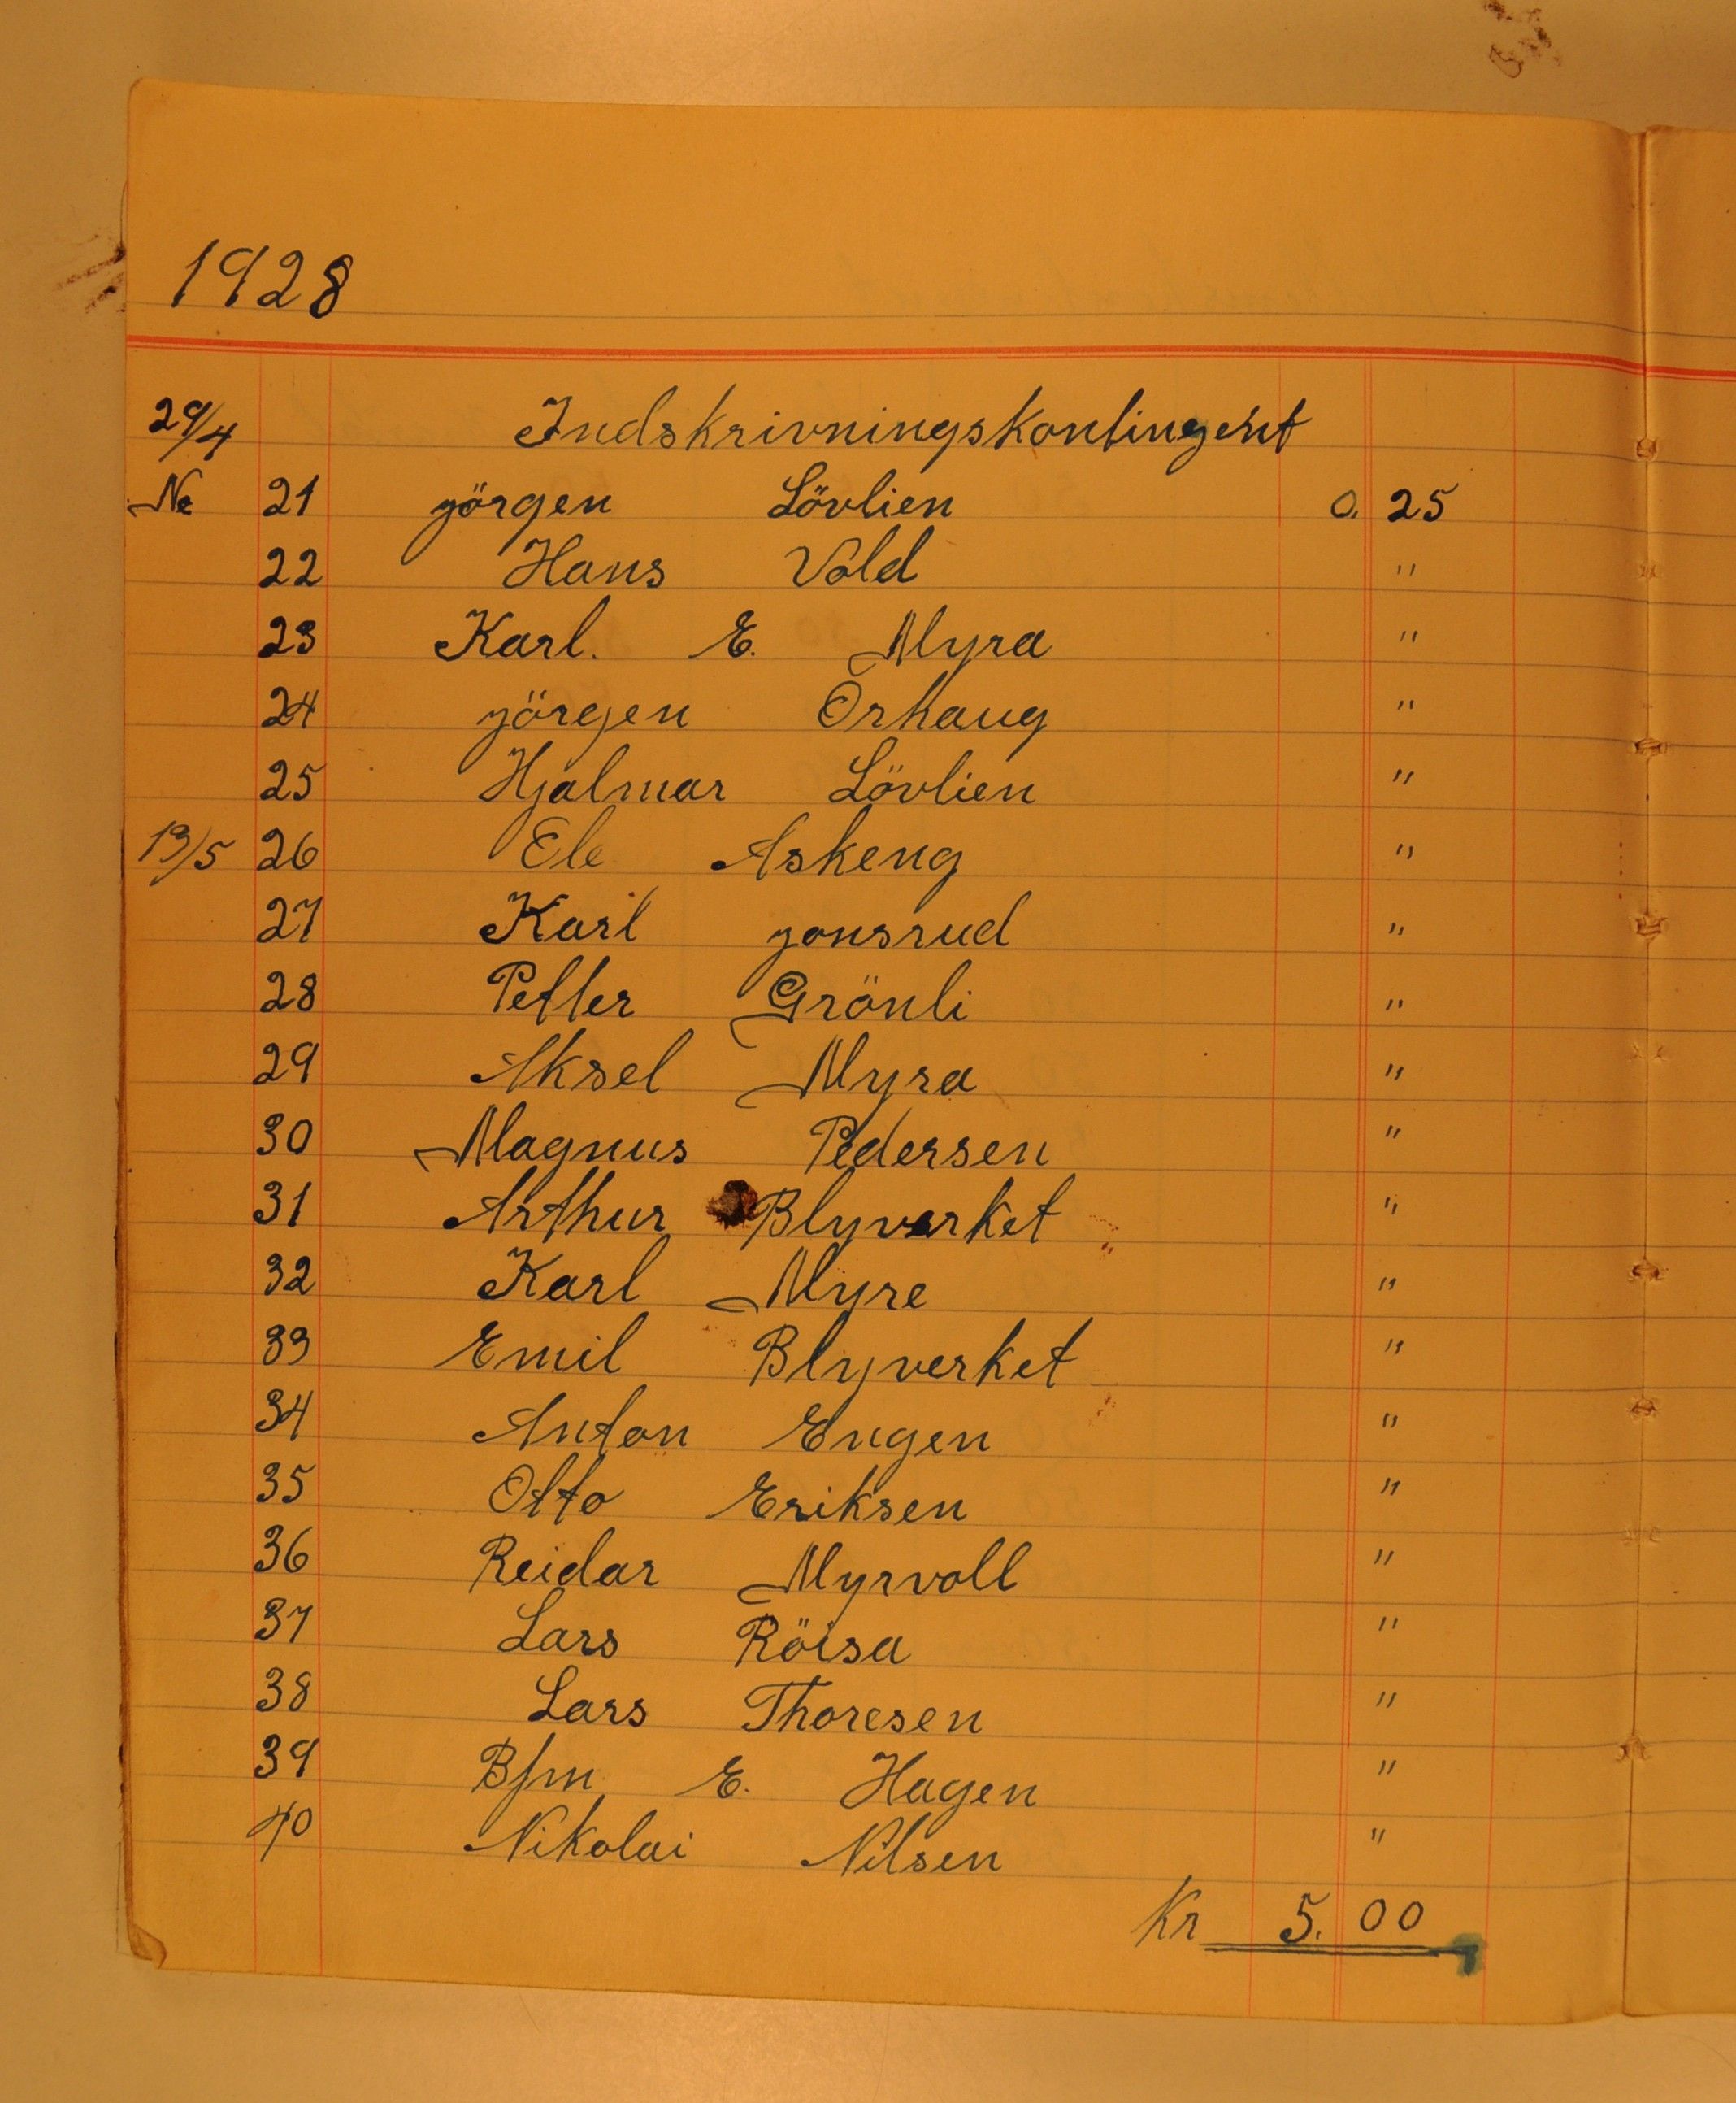 1928
29/4 Indskrivningskontingent
No 21 Jörgen Lövlien 0. 25
22 Hans Vold "
23 Karl. E. Myra "
24 Jörgen Orhaug "
25 Hjalmar Lövlien "
13/5 26 Ole Askeng "
27 Karl Jonsrud "
28 Petter Grönli "
29 Aksel Myra "
30 Magnus Pedersen "
31 Arthur Blyverket "
32 Karl Myre "
33 Emil Blyverket "
34 Anton Engen "
35 Otto Eriksen "
36 Reidar Myrvoll "
37 Lars Röisa "
38 Lars Thoresen "
39 E. Hagen "
40 Nikolai Nilsen "
Kr 5. 00